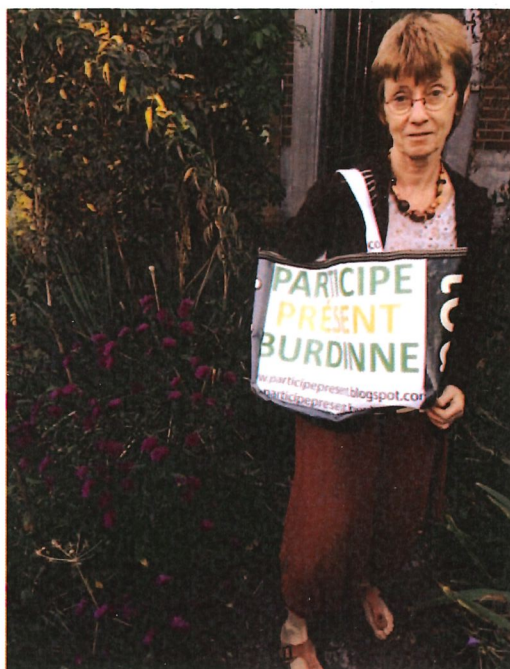 PARTICIPE
PRÉSENT
BURDINNE
w.participepresetblogspot.com
participepreset